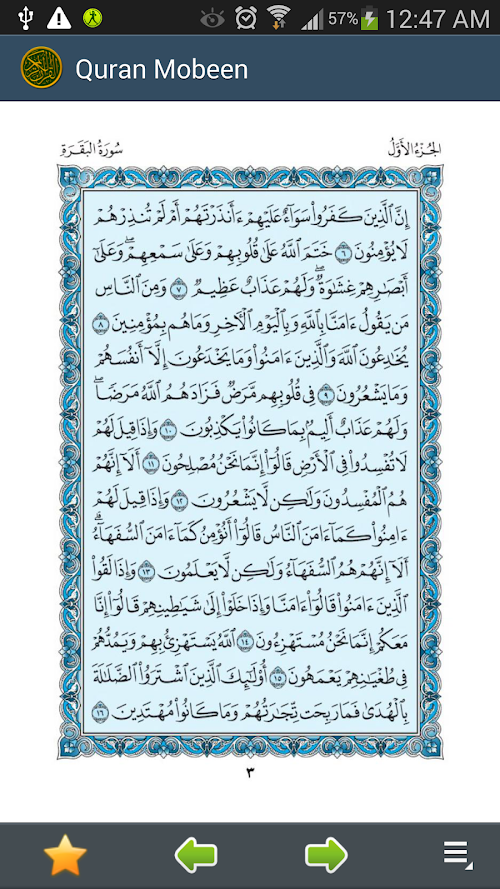 57% 12:47 AM
Quran Mobeen
الجُزْءُ الأَوَّلُ سُورَةُ البَقَرَةِ
إِنَّ ٱلَّذِينَ كَفَرُوا۟ سَوَآءٌ عَلَيْهِمْ ءَأَنذَرْتَهُمْ أَمْ لَمْ تُنذِرْهُمْ
لَا يُؤْمِنُونَ ٦ خَتَمَ ٱللَّهُ عَلَىٰ قُلُوبِهِمْ وَعَلَىٰ سَمْعِهِمْ ۖ وَعَلَىٰٓ
أَبْصَٰرِهِمْ غِشَٰوَةٌ ۖ وَلَهُمْ عَذَابٌ عَظِيمٌ ٧ وَمِنَ ٱلنَّاسِ
مَن يَقُولُ ءَامَنَّا بِٱللَّهِ وَبِٱلْيَوْمِ ٱلْءَاخِرِ وَمَا هُم بِمُؤْمِنِينَ ٨
يُخَٰدِعُونَ ٱللَّهَ وَٱلَّذِينَ ءَامَنُوا۟ وَمَا يَخْدَعُونَ إِلَّآ أَنفُسَهُمْ
وَمَا يَشْعُرُونَ ٩ فِى قُلُوبِهِم مَّرَضٌ فَزَادَهُمُ ٱللَّهُ مَرَضًا ۖ
وَلَهُمْ عَذَابٌ أَلِيمٌۢ بِمَا كَانُوا۟ يَكْذِبُونَ ١٠ وَإِذَا قِيلَ لَهُمْ
لَا تُفْسِدُوا۟ فِى ٱلْأَرْضِ قَالُوٓا۟ إِنَّمَا نَحْنُ مُصْلِحُونَ ١١ أَلَآ إِنَّهُمْ
هُمُ ٱلْمُفْسِدُونَ وَلَٰكِن لَّا يَشْعُرُونَ ١٢ وَإِذَا قِيلَ لَهُمْ
ءَامِنُوا۟ كَمَآ ءَامَنَ ٱلنَّاسُ قَالُوٓا۟ أَنُؤْمِنُ كَمَآ ءَامَنَ ٱلسُّفَهَآءُ ۗ
أَلَآ إِنَّهُمْ هُمُ ٱلسُّفَهَآءُ وَلَٰكِن لَّا يَعْلَمُونَ ١٣ وَإِذَا لَقُوا۟
ٱلَّذِينَ ءَامَنُوا۟ قَالُوٓا۟ ءَامَنَّا وَإِذَا خَلَوْا۟ إِلَىٰ شَيَٰطِينِهِمْ قَالُوٓا۟ إِنَّا
مَعَكُمْ إِنَّمَا نَحْنُ مُسْتَهْزِءُونَ ١٤ ٱللَّهُ يَسْتَهْزِئُ بِهِمْ وَيَمُدُّهُمْ
فِى طُغْيَٰنِهِمْ يَعْمَهُونَ ١٥ أُو۟لَٰٓئِكَ ٱلَّذِينَ ٱشْتَرَوُا۟ ٱلضَّلَٰلَةَ
بِٱلْهُدَىٰ فَمَا رَبِحَت تِّجَٰرَتُهُمْ وَمَا كَانُوا۟ مُهْتَدِينَ ١٦
٣